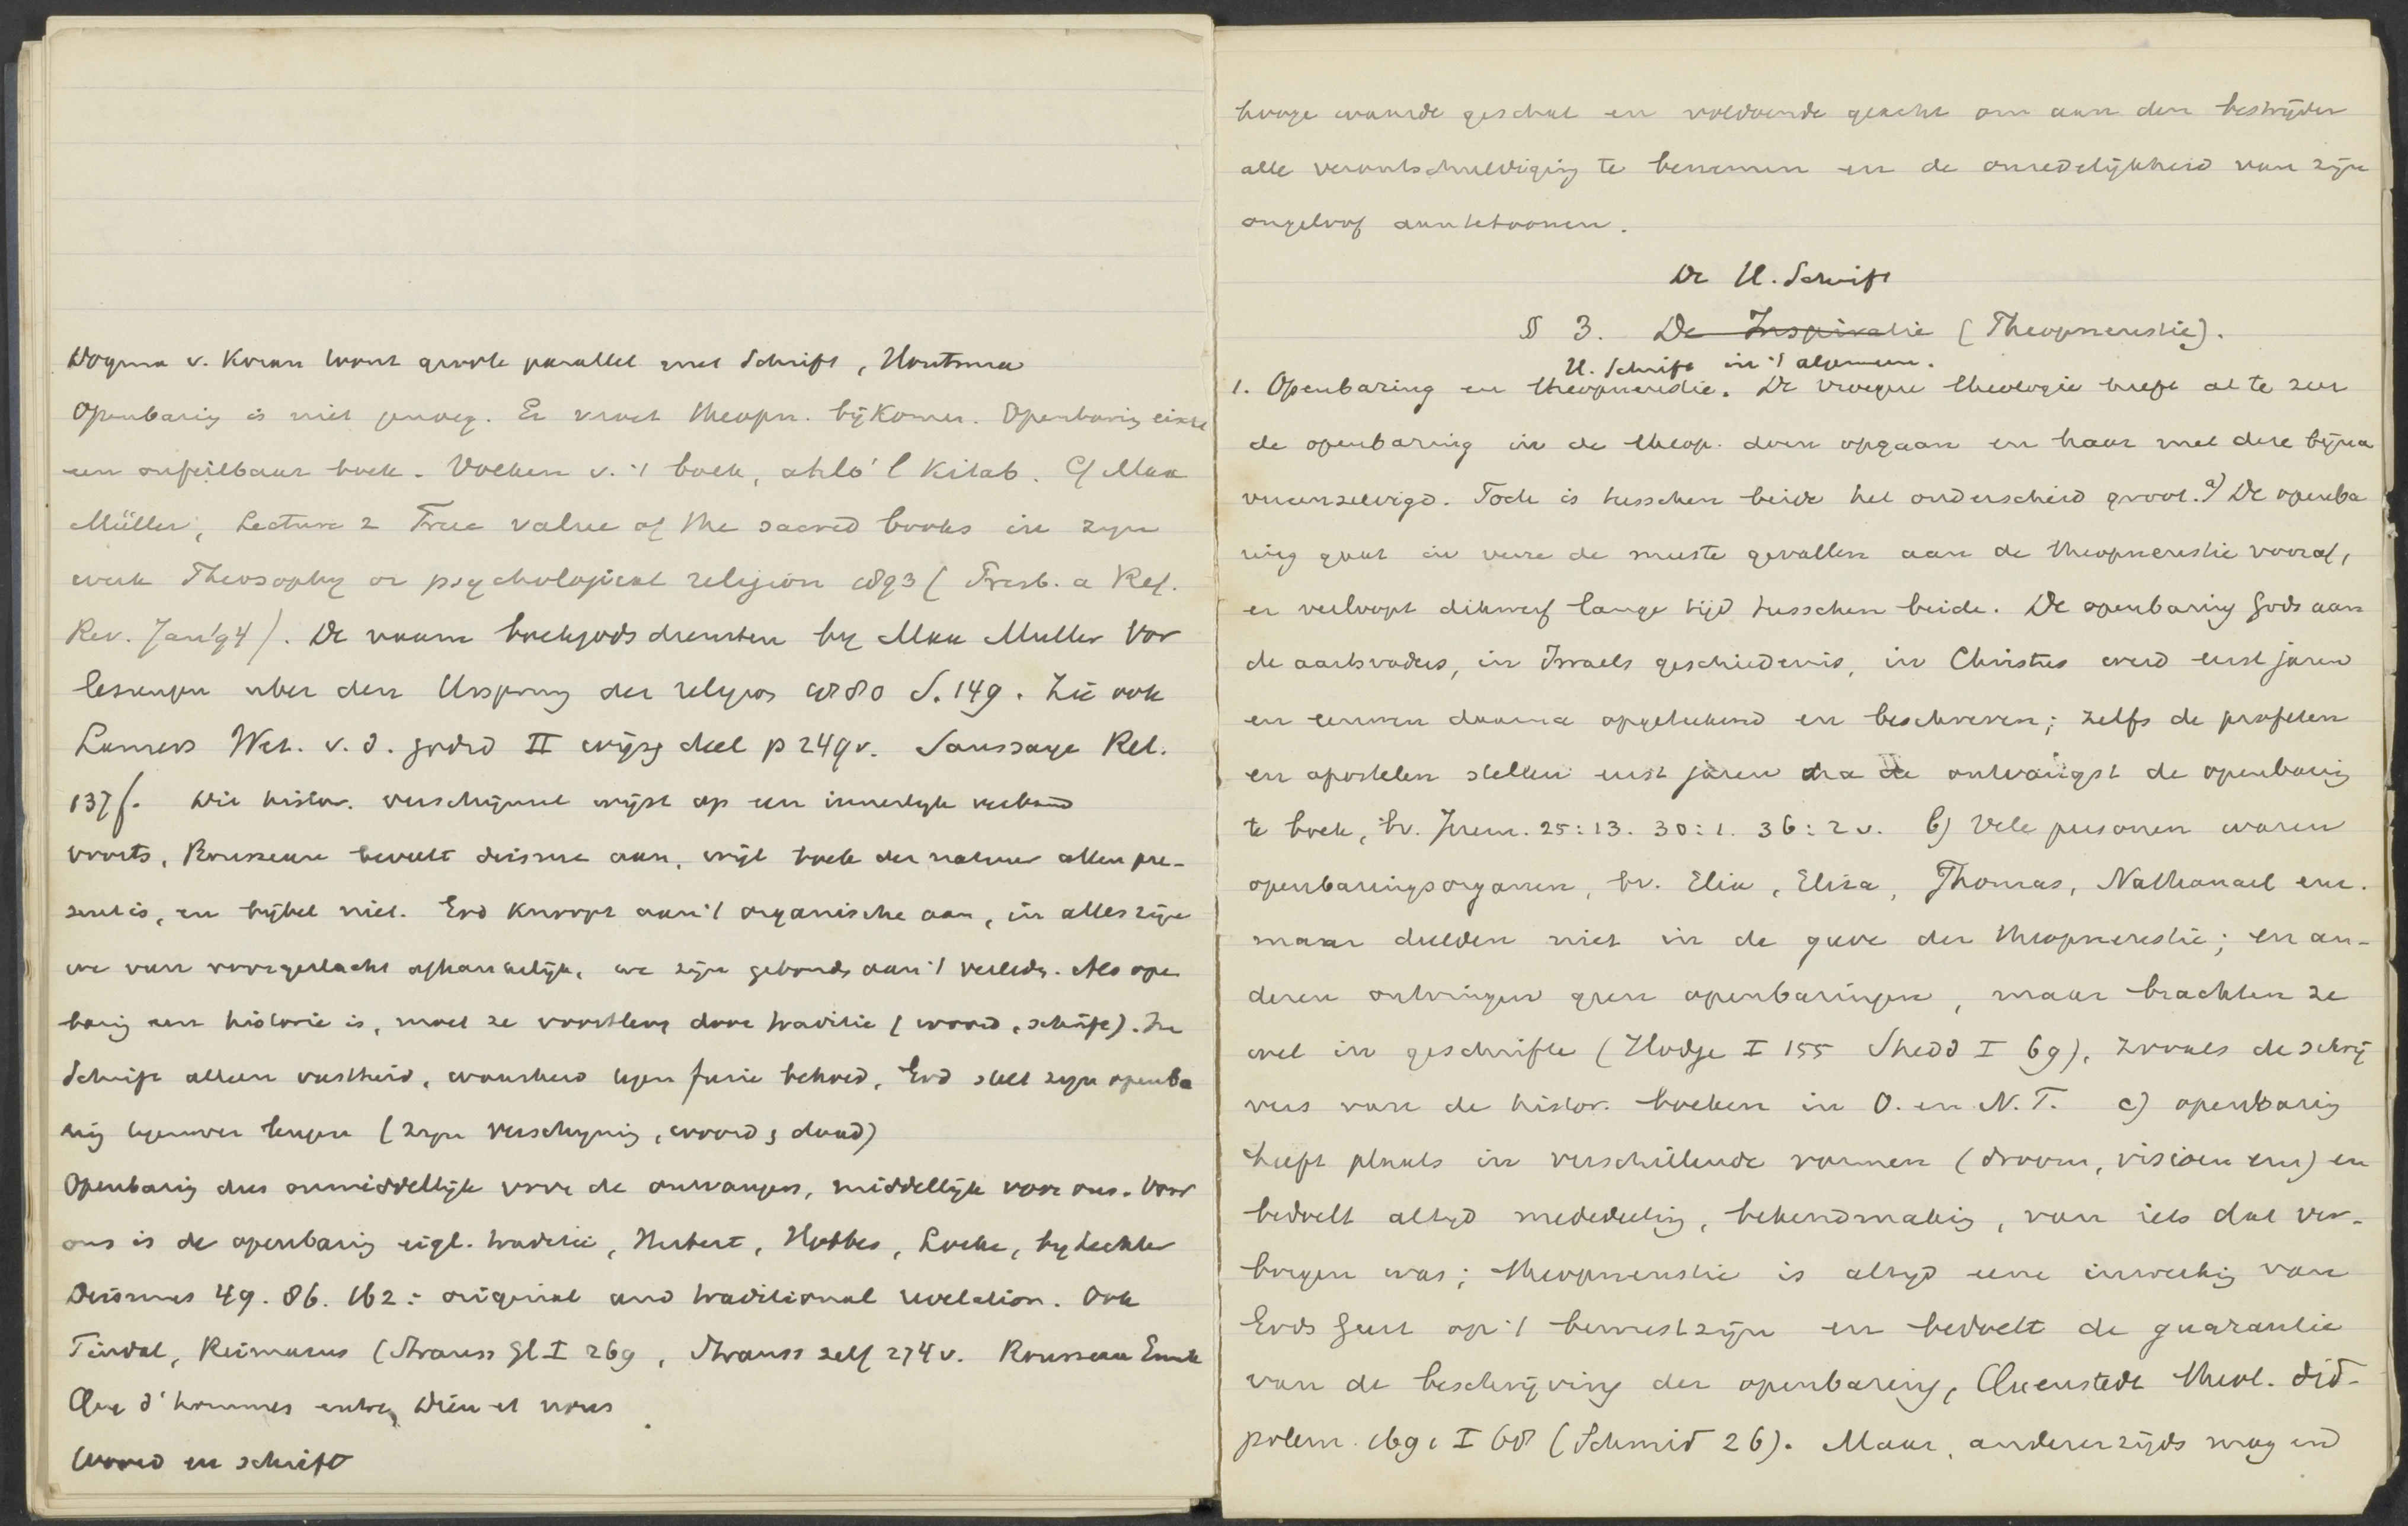 Dogma v. Koran loont groote parallel met Schrift, Houtsma
Openbaring is niet genoeg. Er moet theopn. bijkomen. Openbaring eischt
een onfeilbaar boek. Volken v. 't boek, ahlo'l Kitab. Cf Max
Müller, Lecture 2 True value of the sacred books in zijn
werk Theosophy or psychological religion 1893 (Presb. a Ref.
Rev. Jan '94). De naam boekgodsdiensten by Max Muller Vor
lesungen uber den Ursprung der religion 1880 S. 149. Zie ook
Lamers Wet. v. d. godsd II wijsg deel p 249v. Saussaye Rel.
137f. Dit histor. verschijnsel wijst op een innerlijk verband
voorts, Rousseau beveelt deisme aan, wijl boek der natuur allen pre-
sent is, en bijbel niet. God knoopt aan 't organische aan, in alles zijn
we van voorgeslacht afhankelijk, we zijn gebonden aan 't verleden. Als open
baring een historie is, moet ze voortleven door traditie (woord, schrift). In
Schrift alleen vastheid, waarheid behoed, God stelt zijn openba
ring tegenover leugen (zijn verschijning, woord, daad)
Openbaring dus onmiddellijk voor de ontvangers, middellijk voor ons. Voor
ons is de openbaring eigl. traditie, Herbert, Hobbes, Locke, by Lechler
Deismus 49. 86. 162: original and traditional revelation. Ook
Tindal, Reimarus (Strauss Gl I 269, Strauss zelf 274v. Rousseau Emile
Que d'hommes entre Dieu et nous
Woord en schrift
hooge waarde geschat en voldoende geacht om aan den bestrijder
alle verontschuldiging te benemen en de onredelijkheid van zijn
ongeloof aantetoonen.
De H. Schrift
§ 3. De Inspiratie (Theopneustie).
H. Schrift in 't algemeen.
1. Openbaring en theopneustie. De vroegere theologie heeft al te zeer
de openbaring in de theop. doen opgaan en haar met deze bijna
vereenzelvigd. Toch is tusschen beide het onderscheid groot. a) De openba
ring gaat in verre de meeste gevallen aan de theopneustie vooraf,
er verloopt dikwerf lange tijd tusschen beide. De openbaring Gods aan
de aartsvaders, in Israels geschiedenis, in Christus werd eerst jaren
en eeuwen daarna opgeteekend en beschreven; zelfs de profeten
en apostelen stellen eerst jaren na de ontvangst de openbaring
te boek, bv. Jerem. 25:13. 30:1. 36:2v. b) Vele personen waren
openbaringsorganen, bv. Elia, Eliza, Thomas, Nathanael enz.
maar deelden niet in de gave der theopneustie; en an-
deren ontvingen geen openbaringen, maar brachten ze
wel in geschrifte (Hodge I 155 Shedd I 69), zooals de schrij
vers van de histor. boeken in O. en N. T. c) openbaring
heeft plaats in verschillende vormen (droom, visioen enz) en
bedoelt altijd mededeeling, bekendmaking, van iets dat ver-
borgen was; theopneustie is altijd eene inwerking van
Gods Geest op 't bewustzijn en bedoelt de guarantie
van de beschrijving der openbaring, Quenstedt theol. did-
polem. 1691 I 68 (Schmid 26). Maar, andererzijds mag en